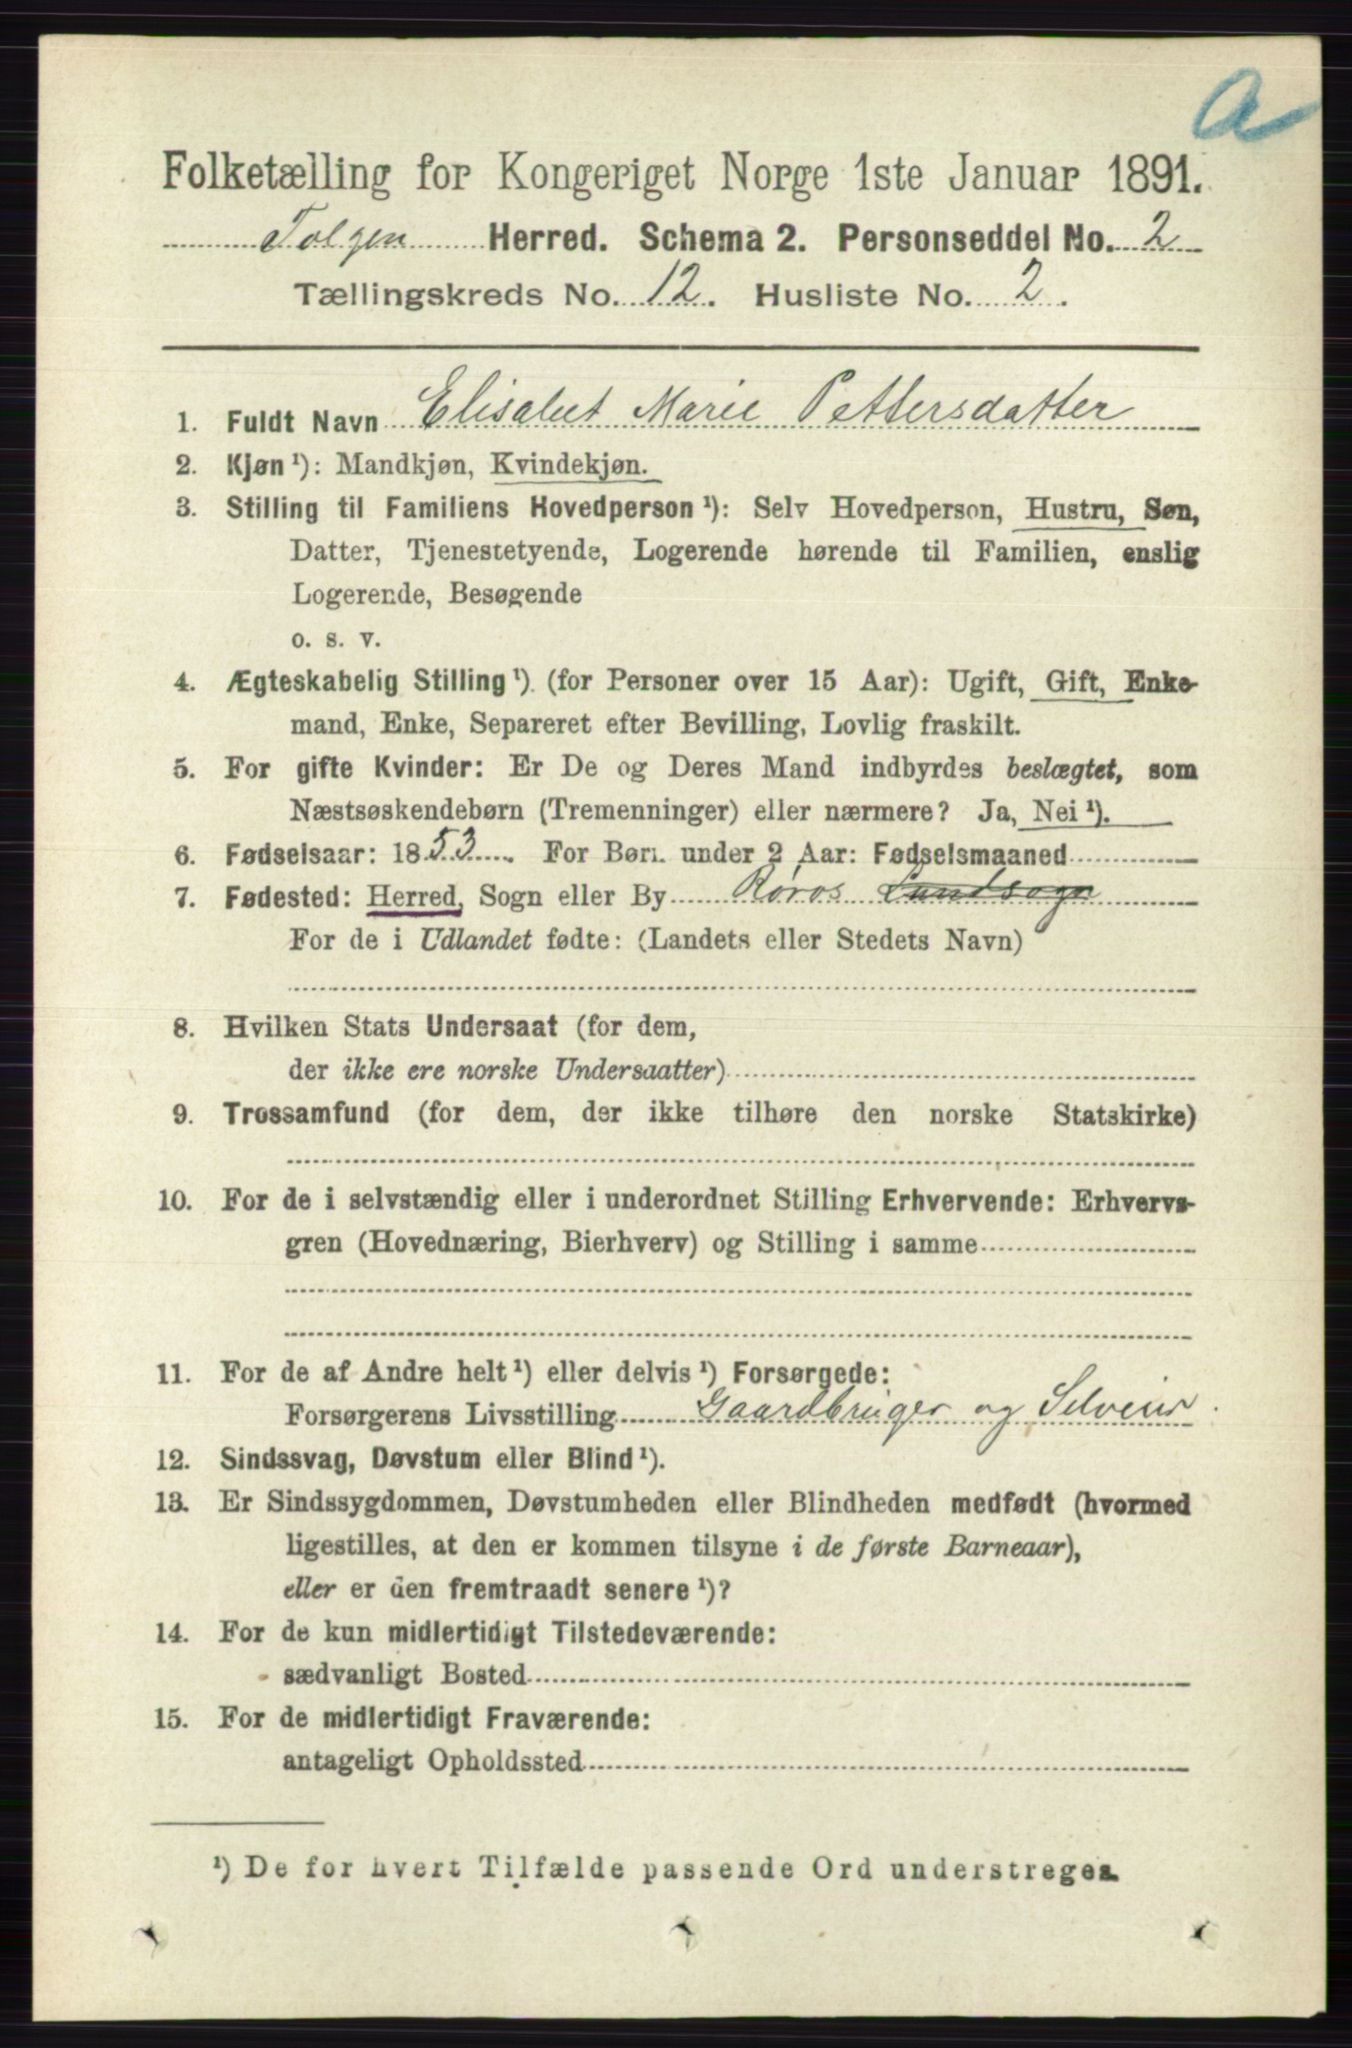 a
Folketælling for Kongeriget Norge 1ste Januar 1891.
Tolgen Herred. Schema 2. Personseddel No. 2
Tællingskreds No. 12. Husliste No. 2.
1. Fuldt Navn Elisabet Marie Pettersdatter
2. Kjøn ¹): Mandkjøn, Kvindekjøn.
3. Stilling til Familiens Hovedperson ¹): Selv Hovedperson, Hustru, Søn,
Datter, Tjenestetyende, Logerende hørende til Familien, enslig
Logerende, Besøgende
o. s. v.
4. Ægteskabelig Stilling ¹) (for Personer over 15 Aar): Ugift, Gift, Enke-
mand, Enke, Separeret efter Bevilling, Lovlig fraskilt.
5. For gifte Kvinder: Er De og Deres Mand indbyrdes beslægtet, som
Næstsøskendebørn (Tremenninger) eller nærmere? Ja, Nei ¹).
6. Fødselsaar: 1853. For Børn under 2 Aar: Fødselsmaaned
7. Fødested: Herred, Sogn eller By Røros Landsogn
For de i Udlandet fødte: (Landets eller Stedets Navn)
8. Hvilken Stats Undersaat (for dem,
der ikke ere norske Undersaatter)
9. Trossamfund (for dem, der ikke tilhøre den norske Statskirke)
10. For de i selvstændig eller i underordnet Stilling Erhvervende: Erhvervs-
gren (Hovednæring, Bierhverv) og Stilling i samme
11. For de af Andre helt ¹) eller delvis ¹) Forsørgede:
Forsørgerens Livsstilling Gaardbruger og Selveier.
12. Sindssvag, Døvstum eller Blind ¹).
13. Er Sindssygdommen, Døvstumheden eller Blindheden medfødt (hvormed
ligestilles, at den er kommen tilsyne i de første Barneaar),
eller er den fremtraadt senere ¹)?
14. For de kun midlertidigt Tilstedeværende:
sædvanligt Bosted
15. For de midlertidigt Fraværende:
antageligt Opholdssted
¹) De for hvert Tilfælde passende Ord understreges.